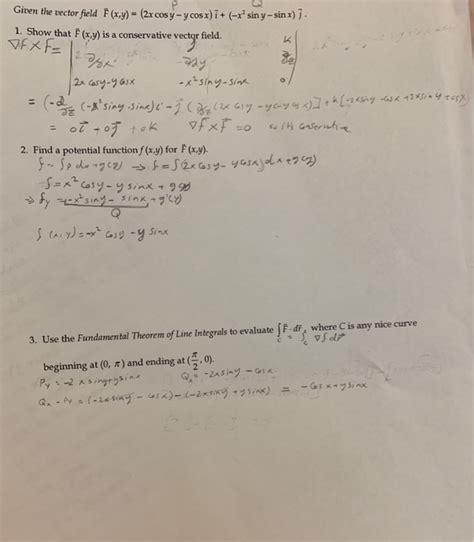 P Q
Given the vector field F (x,y) = (2x cos y – y cos x) i + (–x² sin y – sin x) j .
1. Show that F (x,y) is a conservative vector field.
∇F × F =
j k
∂/∂x ∂/∂y ∂/∂z
2x cosy - y cosx -x² siny - sinx 0
= 0i + 0j + 0k ∇F × F = 0
2. Find a potential function f (x,y) for F (x,y).
f = ∫P dx + g(y) → f = ∫(2x cosy - y cosx) dx + g(y)
f = x² cosy - y sinx + g(y)
⇒ fy = -x² siny - sinx + g'(y)
Q
f (x,y) = -x² cosy - y sinx
3. Use the Fundamental Theorem of Line Integrals to evaluate ∫C F · dr, where C is any nice curve
= ∫C ∇f dr
beginning at (0, π) and ending at (π/2, 0).
Py = -2x siny + y sinx Qx = -2x siny - cosx
Qx - Py = (-2x siny - cosx) - (-2x siny + y sinx) = - cosx + y sinx